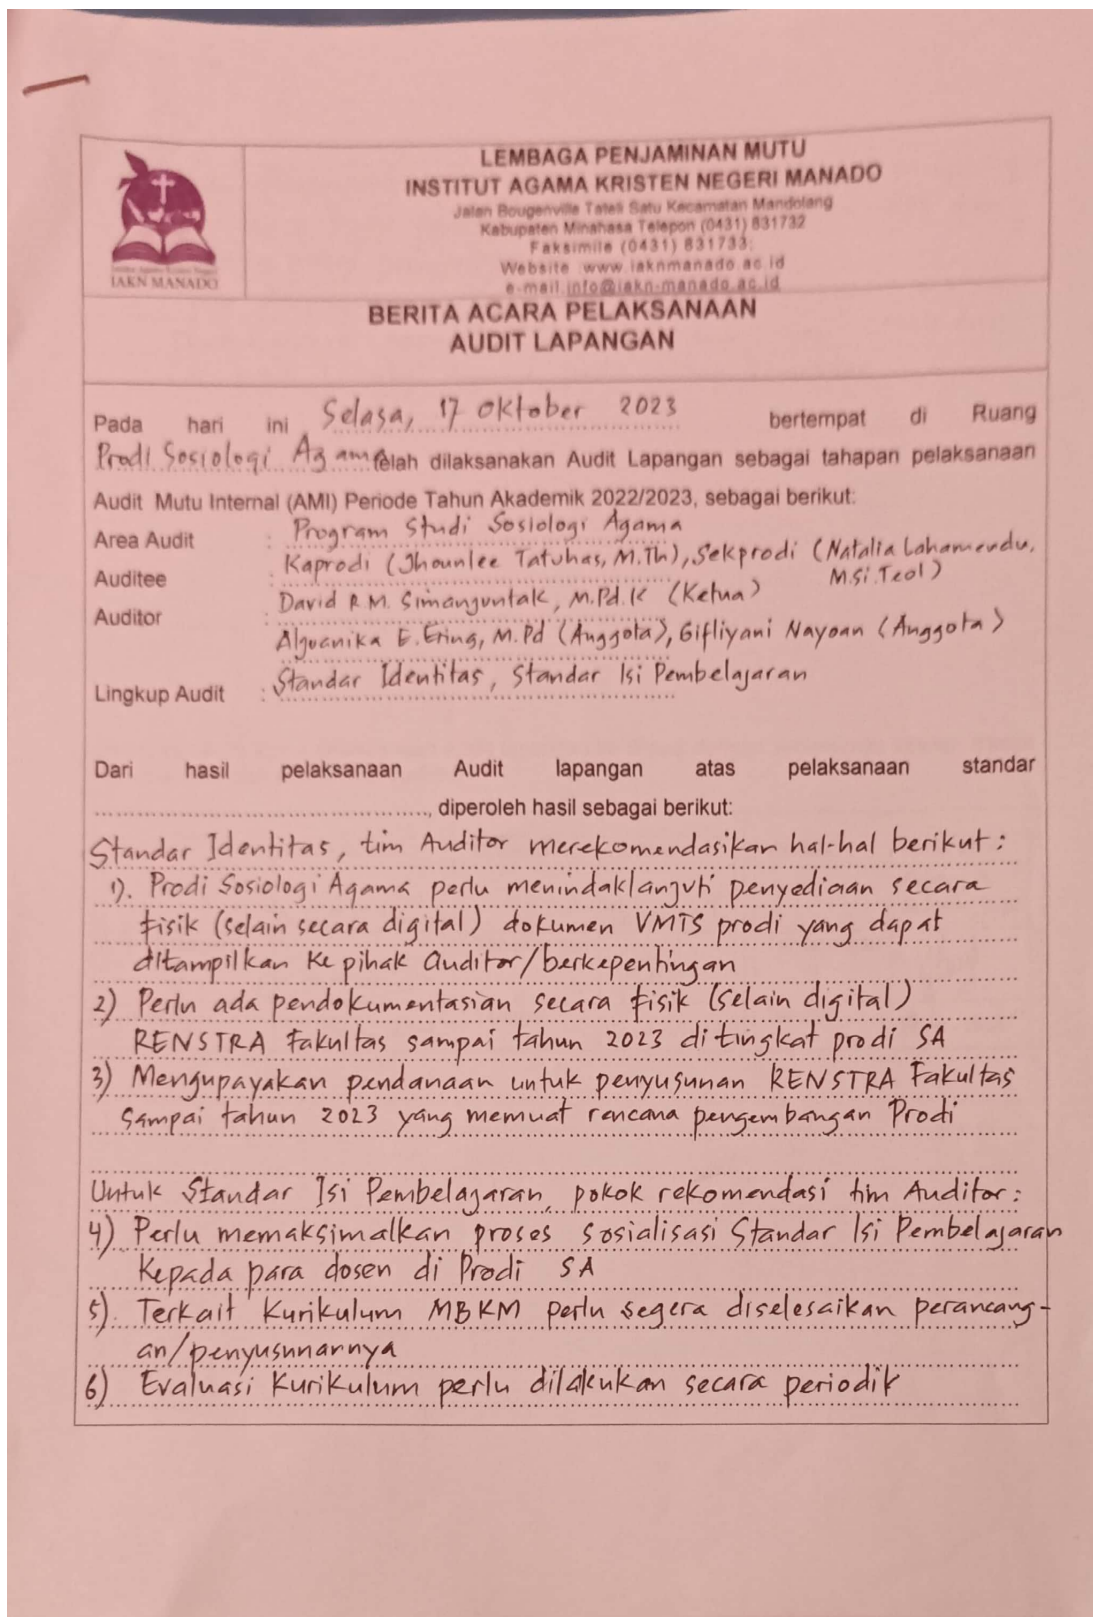 LEMBAGA PENJAMINAN MUTU
INSTITUT AGAMA KRISTEN NEGERI MANADO
Jalan Bougenville Tateli Satu Kecamatan Mandolang
Kabupaten Minahasa Telepon (0431) 831732
Faksimile (0431) 831733;
Website :www.iaknmanado.ac.id
e-mail:info@iakn-manado.ac.id
IAKN MANADO
BERITA ACARA PELAKSANAAN
AUDIT LAPANGAN
Pada hari ini Selasa, 17 Oktober 2023 bertempat di Ruang
Prodi Sosiologi Agama telah dilaksanakan Audit Lapangan sebagai tahapan pelaksanaan
Audit Mutu Internal (AMI) Periode Tahun Akademik 2022/2023, sebagai berikut:
Area Audit : Program Studi Sosiologi Agama
Auditee : Kaprodi (Jhounlee Tatuhas, M.Th), Sekprodi (Natalia Lahamendu,
M.Si.Teol)
Auditor : David R.M. Simanjuntak, M.Pd.K (Ketua)
E. Ering, M.Pd (Anggota), Gifliyani Nayoan (Anggota)
Lingkup Audit : Standar Identitas, Standar Isi Pembelajaran
Dari hasil pelaksanaan Audit lapangan atas pelaksanaan standar
......................................................, diperoleh hasil sebagai berikut:
Standar Identitas, tim Auditor merekomendasikan hal-hal berikut :
1). Prodi Sosiologi Agama perlu menindaklanjuti penyediaan secara
fisik (selain secara digital) dokumen VMTS prodi yang dapat
ditampilkan ke pihak Auditor/berkepentingan
2) Perlu ada pendokumentasian secara fisik (selain digital)
RENSTRA Fakultas sampai tahun 2023 di tingkat prodi SA
3) Mengupayakan pendanaan untuk penyusunan RENSTRA Fakultas
sampai tahun 2023 yang memuat rencana pengembangan Prodi
Untuk Standar Isi Pembelajaran, pokok rekomendasi tim Auditor :
4) Perlu memaksimalkan proses sosialisasi Standar Isi Pembelajaran
kepada para dosen di Prodi SA
5). Terkait Kurikulum MBKM perlu segera diselesaikan perancang-
an/penyusunannya
6) Evaluasi Kurikulum perlu dilakukan secara periodik